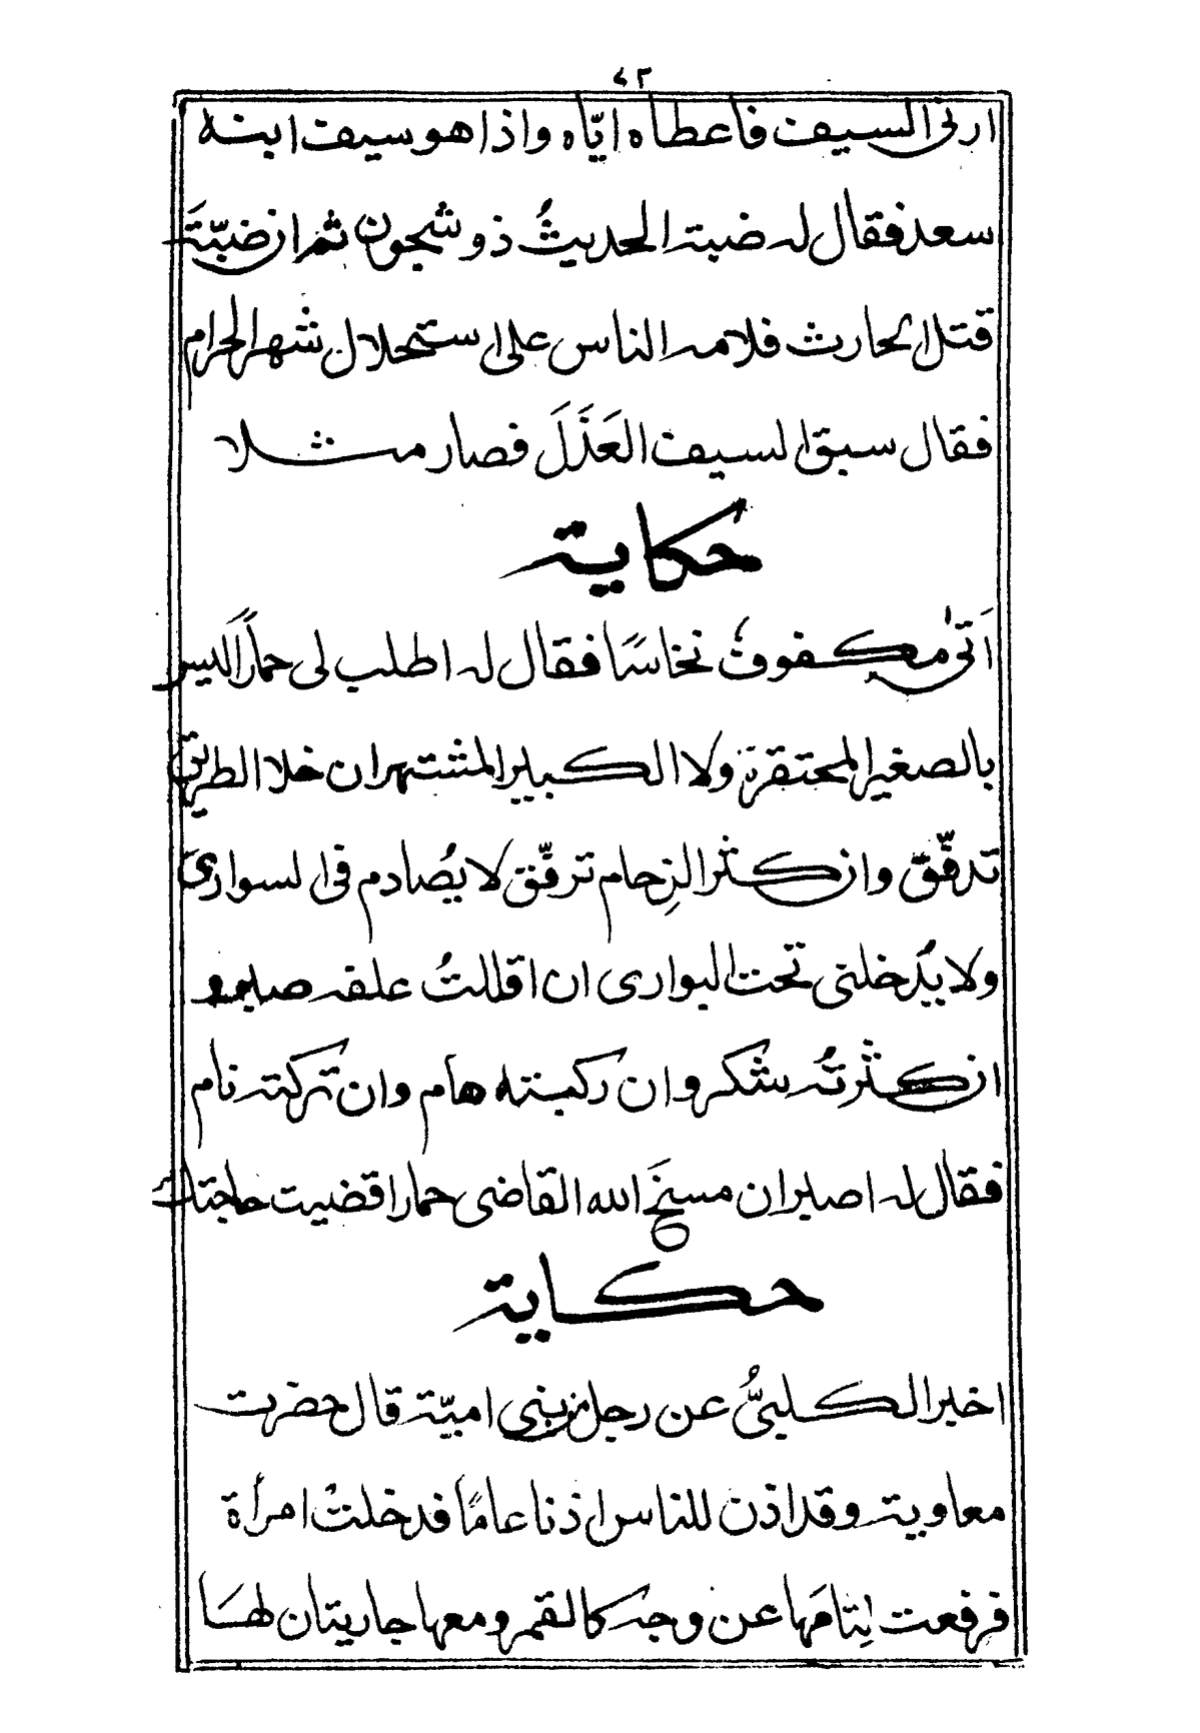 ٤٣
ارنى السيف فاعطاه ايّاه واذا هو سيف ابنه
سعد فقال له ضبة الحديثُ ذو شجون ثم ان ضبّةَ
قتل الحارث فلامه الناس على استحلال شهر الحرام
فقال سبق السيف العَذَلَ فصار مثلا
حكاية
اَتىٰ مكفوفٌ نخاسًا فقال له اطلب لى حمارًا ليس
بالصغير المحتقر ولا الكبير المشتهر ان خلا الطريق
تدفّق وان كثر الزِحام ترفّق لا يُصادم فى السوارى
ولا يُدخلنى تحت البوارى ان اقللتُ علفه صبر و
ان كثرتُه شكر وان ركبته هام وان تركته نام
فقال له اصبر ان مسخَ الله القاضى حمارا قضيت حاجتك
حكاية
اخبر الكلبىُّ عن رجل من بنى اميّة قال حضرت
معاوية وقد اذن للناس اذنا عامًا فدخلتْ امرأة
فرفعت لِثامَها عن وجه كالقمر ومعها جاريتان لهَا